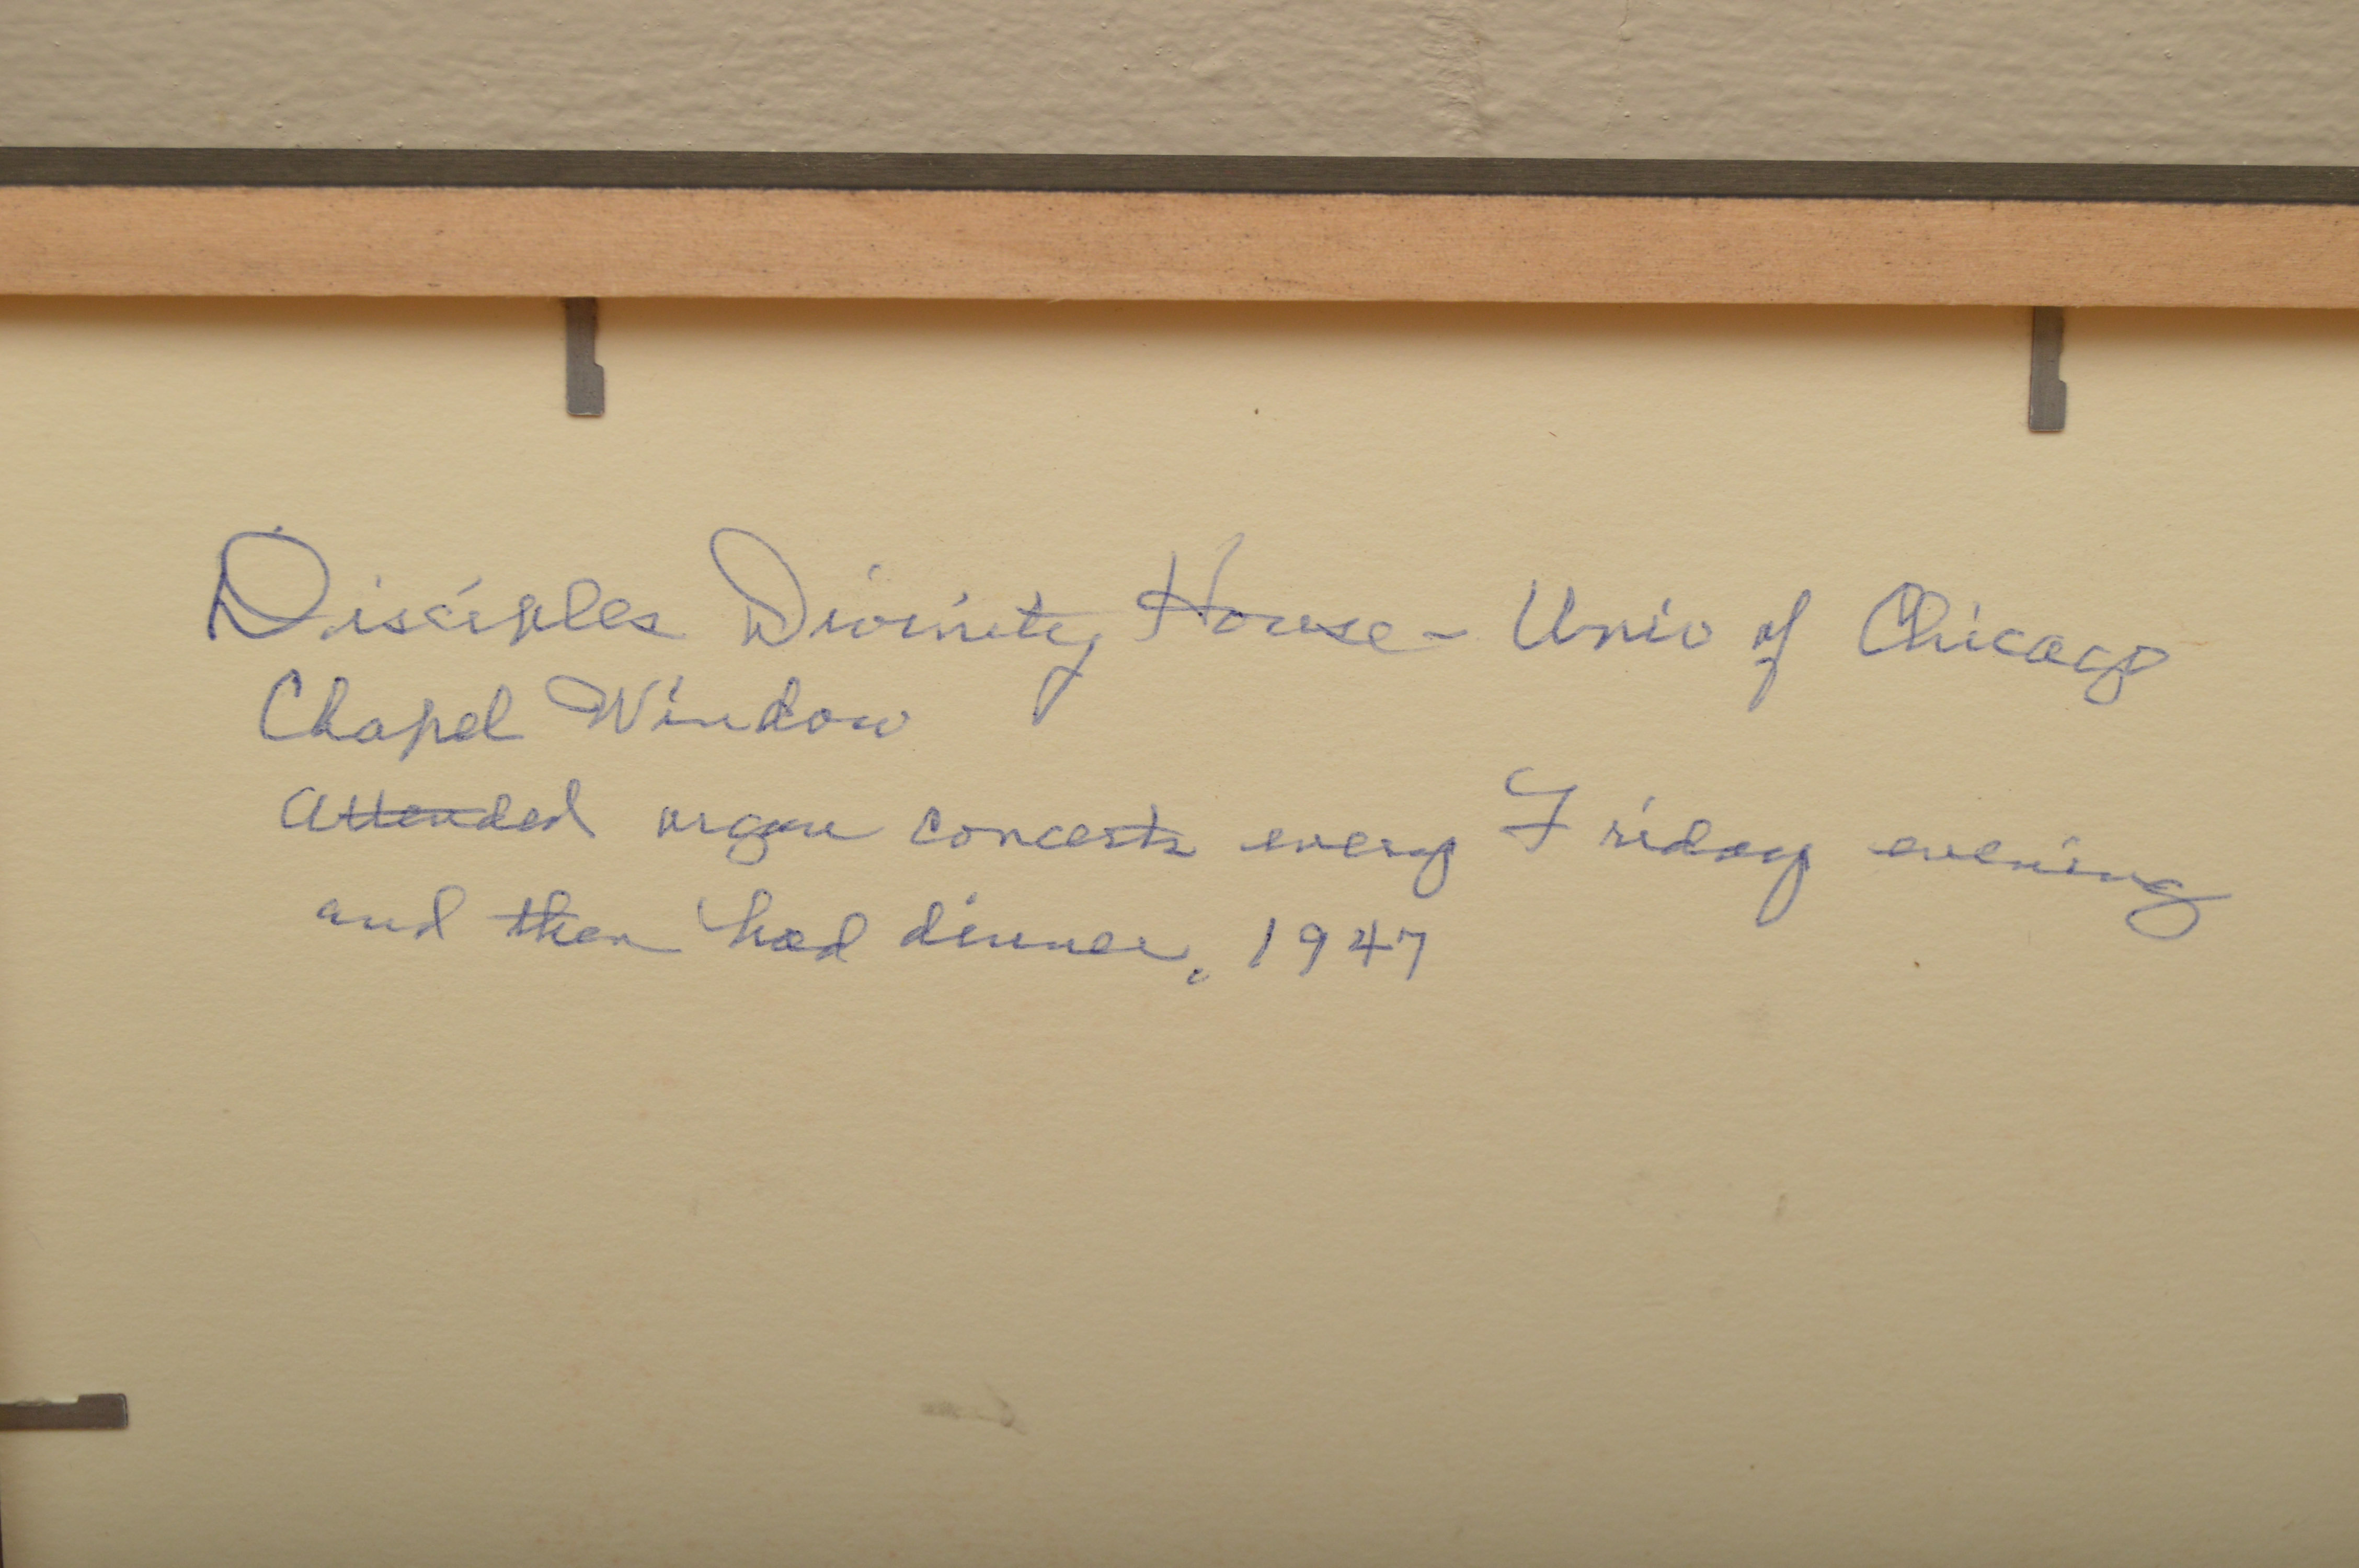 Disciples Divinity House - Univ of Chicago
Chapel Window
Attended organ concerts every Friday evening
and then had dinner. 1947